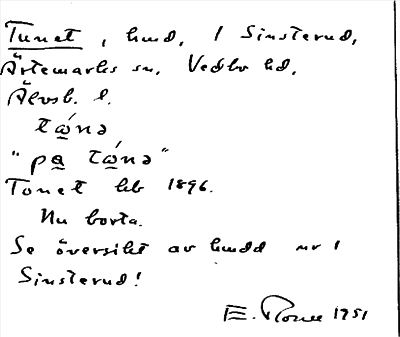 Tunet, hmd, 1 Sinsterud,
Ärtemarks sn, Vedbo hd,
Älvsb. l.
tώ̲nə
"pa̲ tώ̲nə"
Tonet hb 1896.
Nu borta.
Se översikt av hmdd nr 1
Sinsterud!
E. 1951